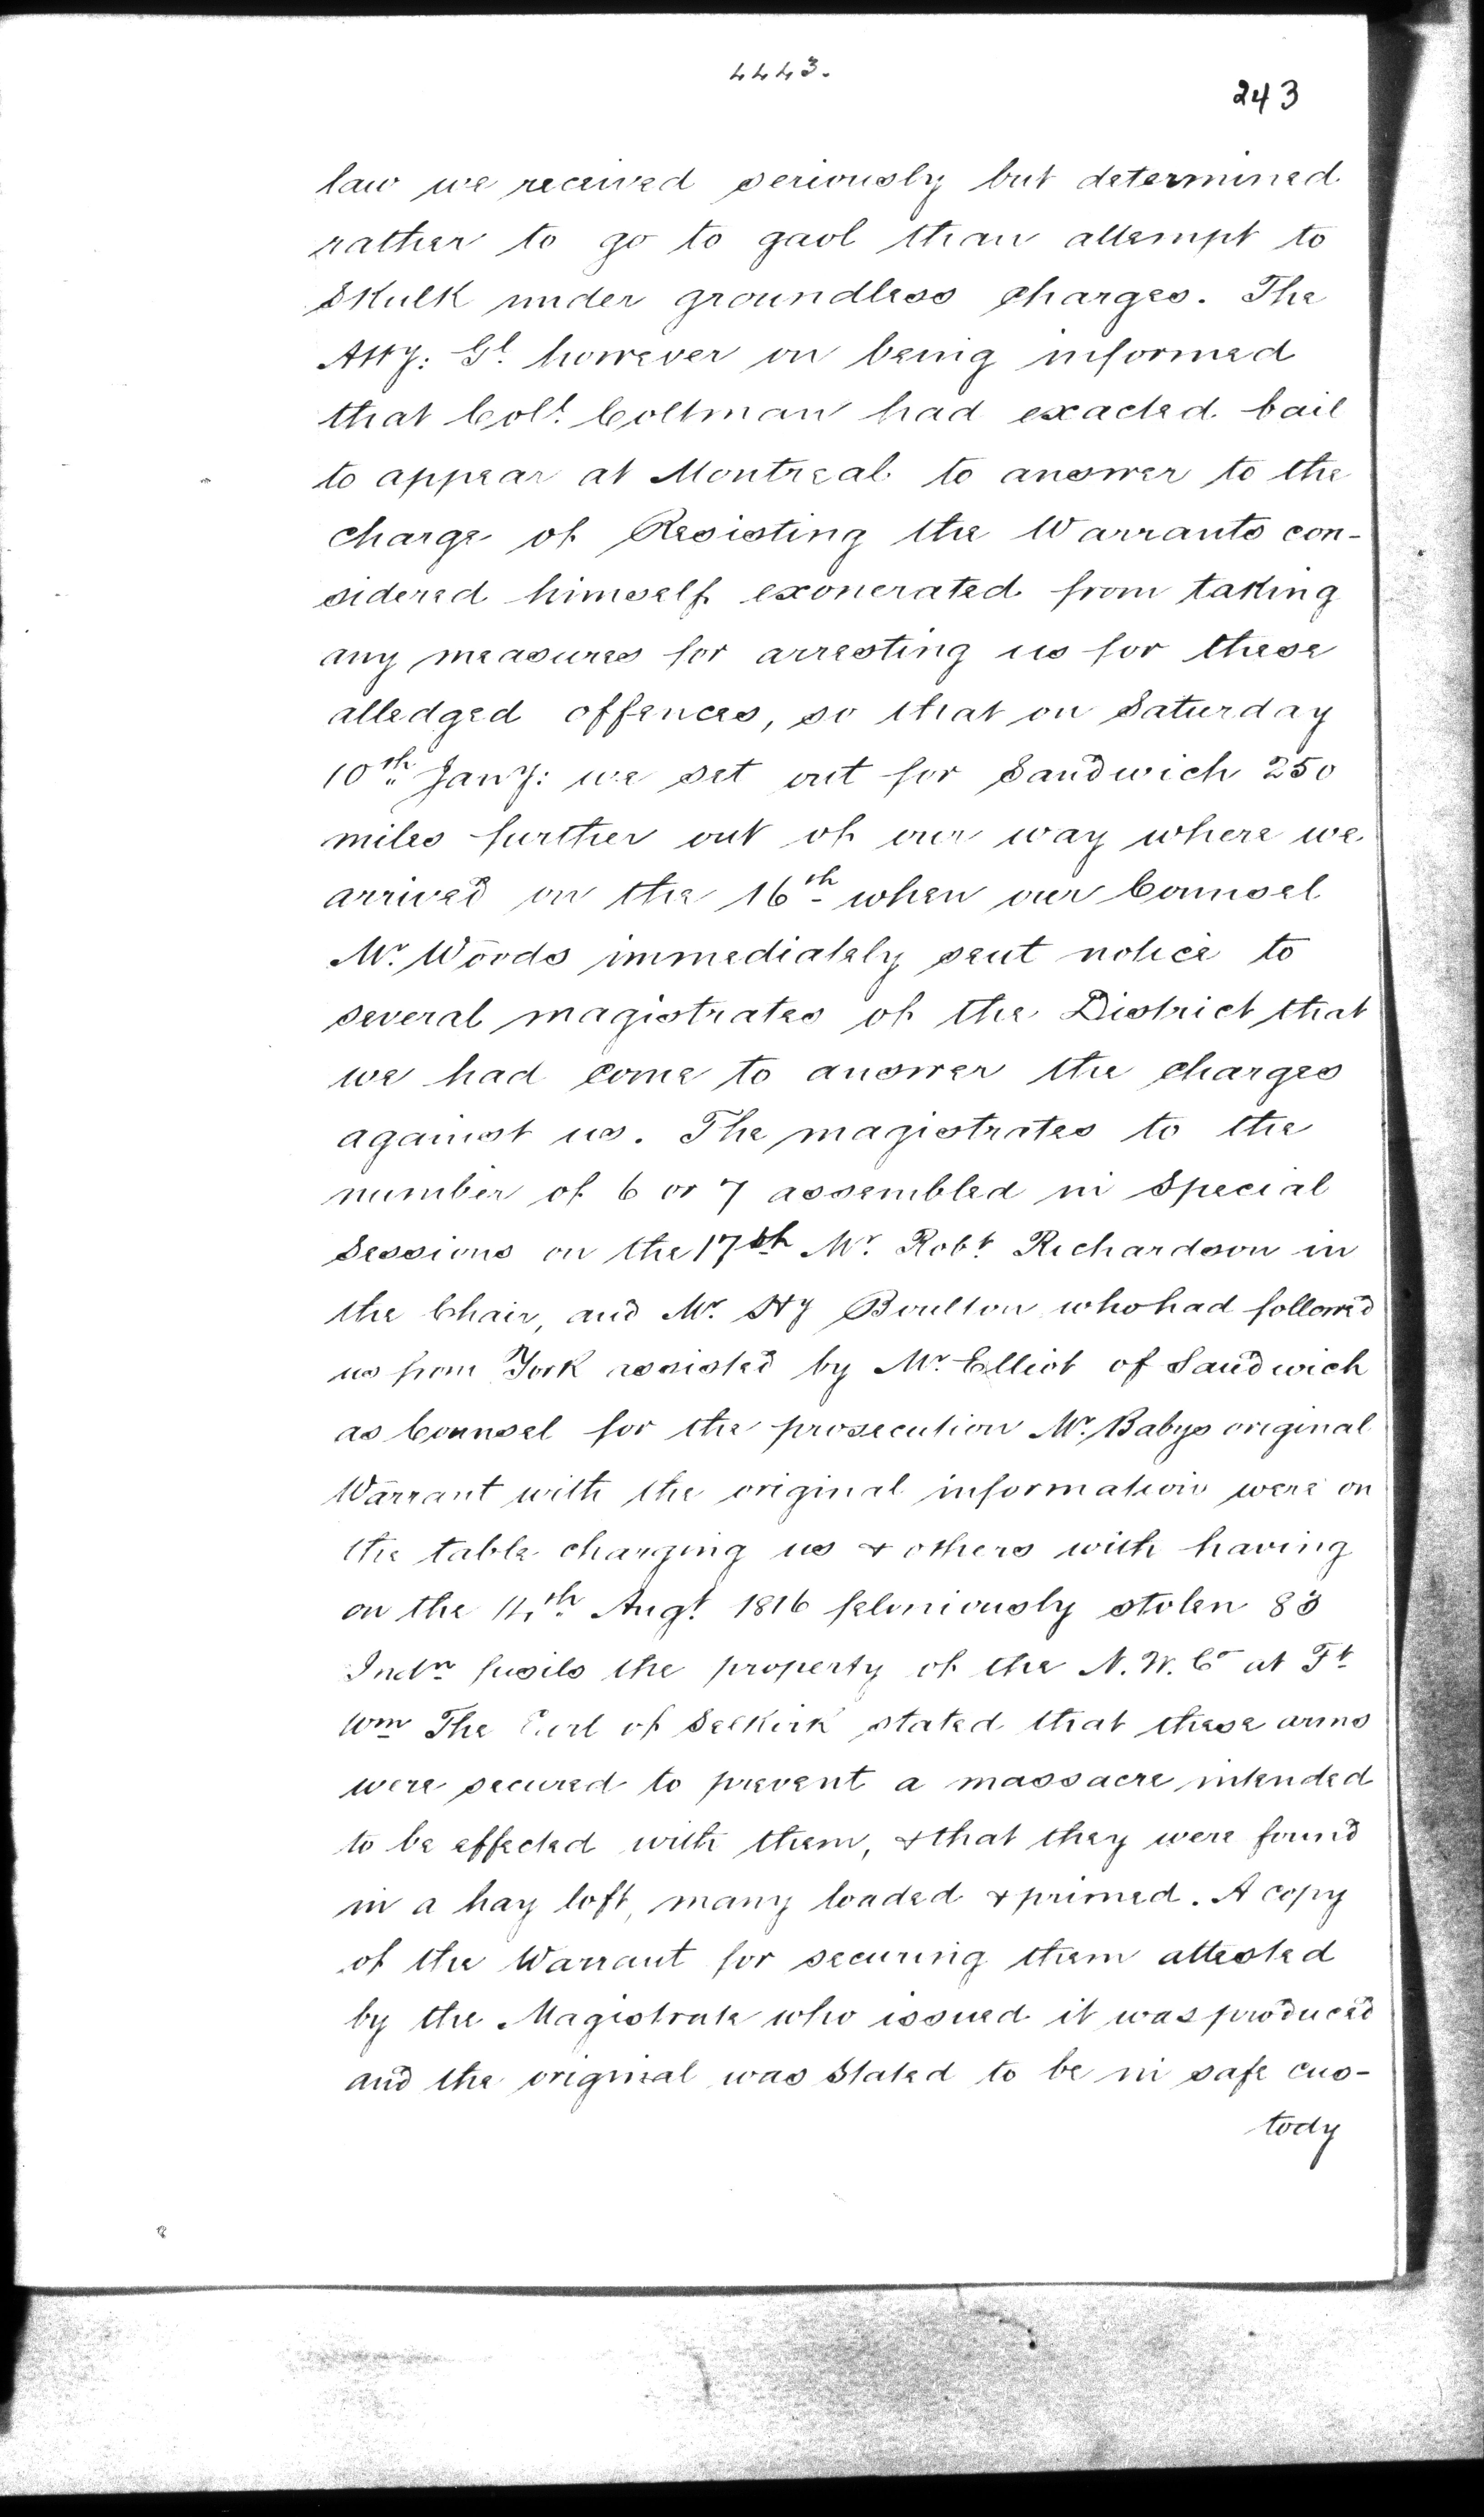 4443.
243
law we received seriously but determined
rather to go to gaol than attempt to
Skulk under groundless charges. The
Atty: Gl. however on being informed
that Col.l Coltman had exacted bail
to appear at Montreal to answer to the
charge of Resisting the Warrants con-
sidered himself exonerated from taking
any measures for arresting us for these
alledged offences, so that on Saturday
10th Jany: we set out for Sandwich 250
miles further out of our way where we
arrived on the 16th when our Counsel
Mr. Woods immediately sent notice to
several magistrates of the District that
we had come to answer the charges
against us. The magistrates to the
number of 6 or 7 assembled in Special
Sessions on the 17th Mr. Robt Richardson in
the Chair, and Mr. Hy Boulton who had followed
us from York assisted by Mr. Elliot of Sandwich
as Counsel for the prosecution Mr. Babys original
Warrant with the original information were on
the table charging us & others with having
on the 14th Augt. 1816 feloniously stolen 83
Indn fusils the property of the N. W. Co at Ft
Wm The Earl of Selkirk stated that these arms
were secured to prevent a massacre intended
to be effected with them, & that they were found
in a hay loft, many loaded & primed. A copy
of the Warrant for securing them attested
by the Magistrate who issued it was produced
and the original was Stated to be in safe cus-
tody